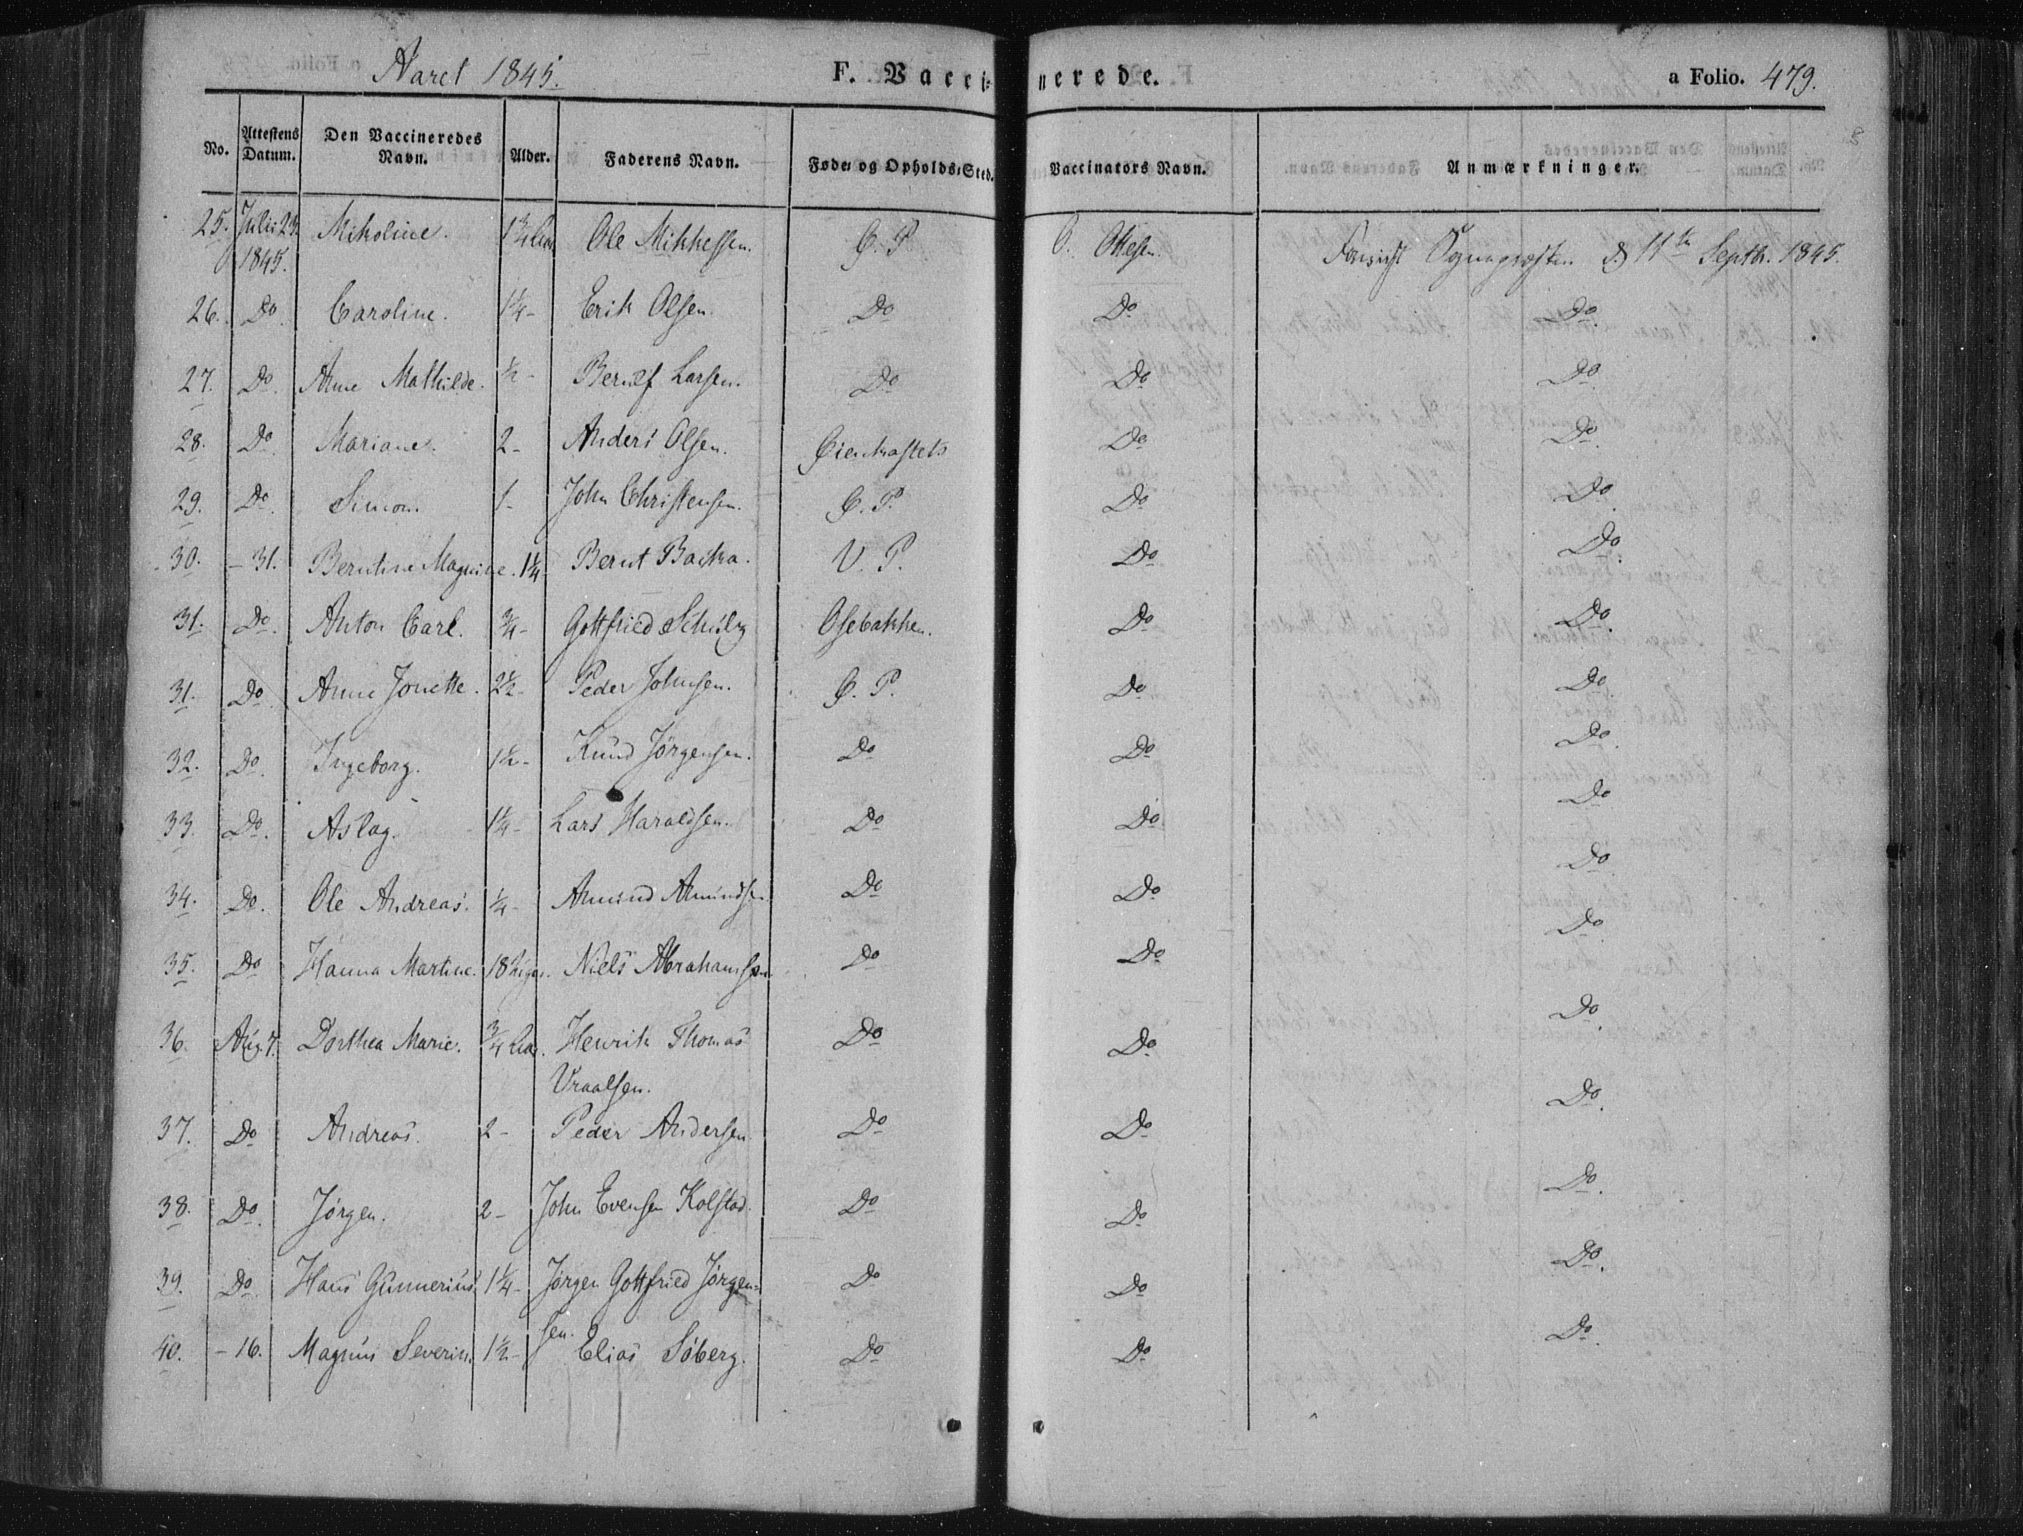 Aaret 1845. F. Vaccinerede. a Folio. 479.
No. Attestens Datum. Den Vaccineredes Navn. Alder. Faderens Navn. Føde- og Opholds-Sted. Vaccinators Navn. Anmærkninger.
25. Julii 23 1845. Nikoline. 1 3/4 Aar Ole Mikkelsen. G. P. O. Ottesen. Foreviist Sognepræsten d 11te Septbr. 1845.
26. Do. Caroline. 1 1/4 - Erik Olsen. Do Do. Do.
27. Do. Anne Mathilde. 1/2 - Berulf Larsen. Do Do Do.
28. Do. Mariane. 2 - Anders Olsen. Øienkastets Do Do.
29. Do. Simon. 1 - John Christensen. G. P. Do Do.
30. - 31. Berntine Magnine. 1 1/4 Bernt Backa. V. P. Do Do.
31. Do. Anton Carl. 3/4 - Gottfried Schulz Osebakken. Do Do.
31. Do Anne Jonette. 2 1/2 - Peder Johnsen. G. P. Do Do.
32. Do. Ingeborg. 1 1/2 - Knud Jörgensen. Do Do Do.
33. Do. Aslag. 1 1/4 - Lars Haraldsen. Do Do Do
34. Do. Ole Andreas. 1/4 - Amund Amundsen. Do Do. Do
35. Do Hanna Martine. 18 Uger. Niels Abrahamsen Do Do Do
36. Aug. 7. Dorthea Marie. 3/4 Aar. Henrik Thomas Do Do. Do.
Vraalsen.
37. Do Andreas. 2 - Peder Andersen Do Do. Do.
38. Do. Jörgen. 2 - John Evensen Kolstad. Do Do Do.
39. Do. Hans Gunnerius 1 1/4 - Jörgen Gottfried Jörgen- Do Do Do.
sen.
40. - 16. Magnus Severin. 1 1/2 - Elias Söberg. Do Do Do.